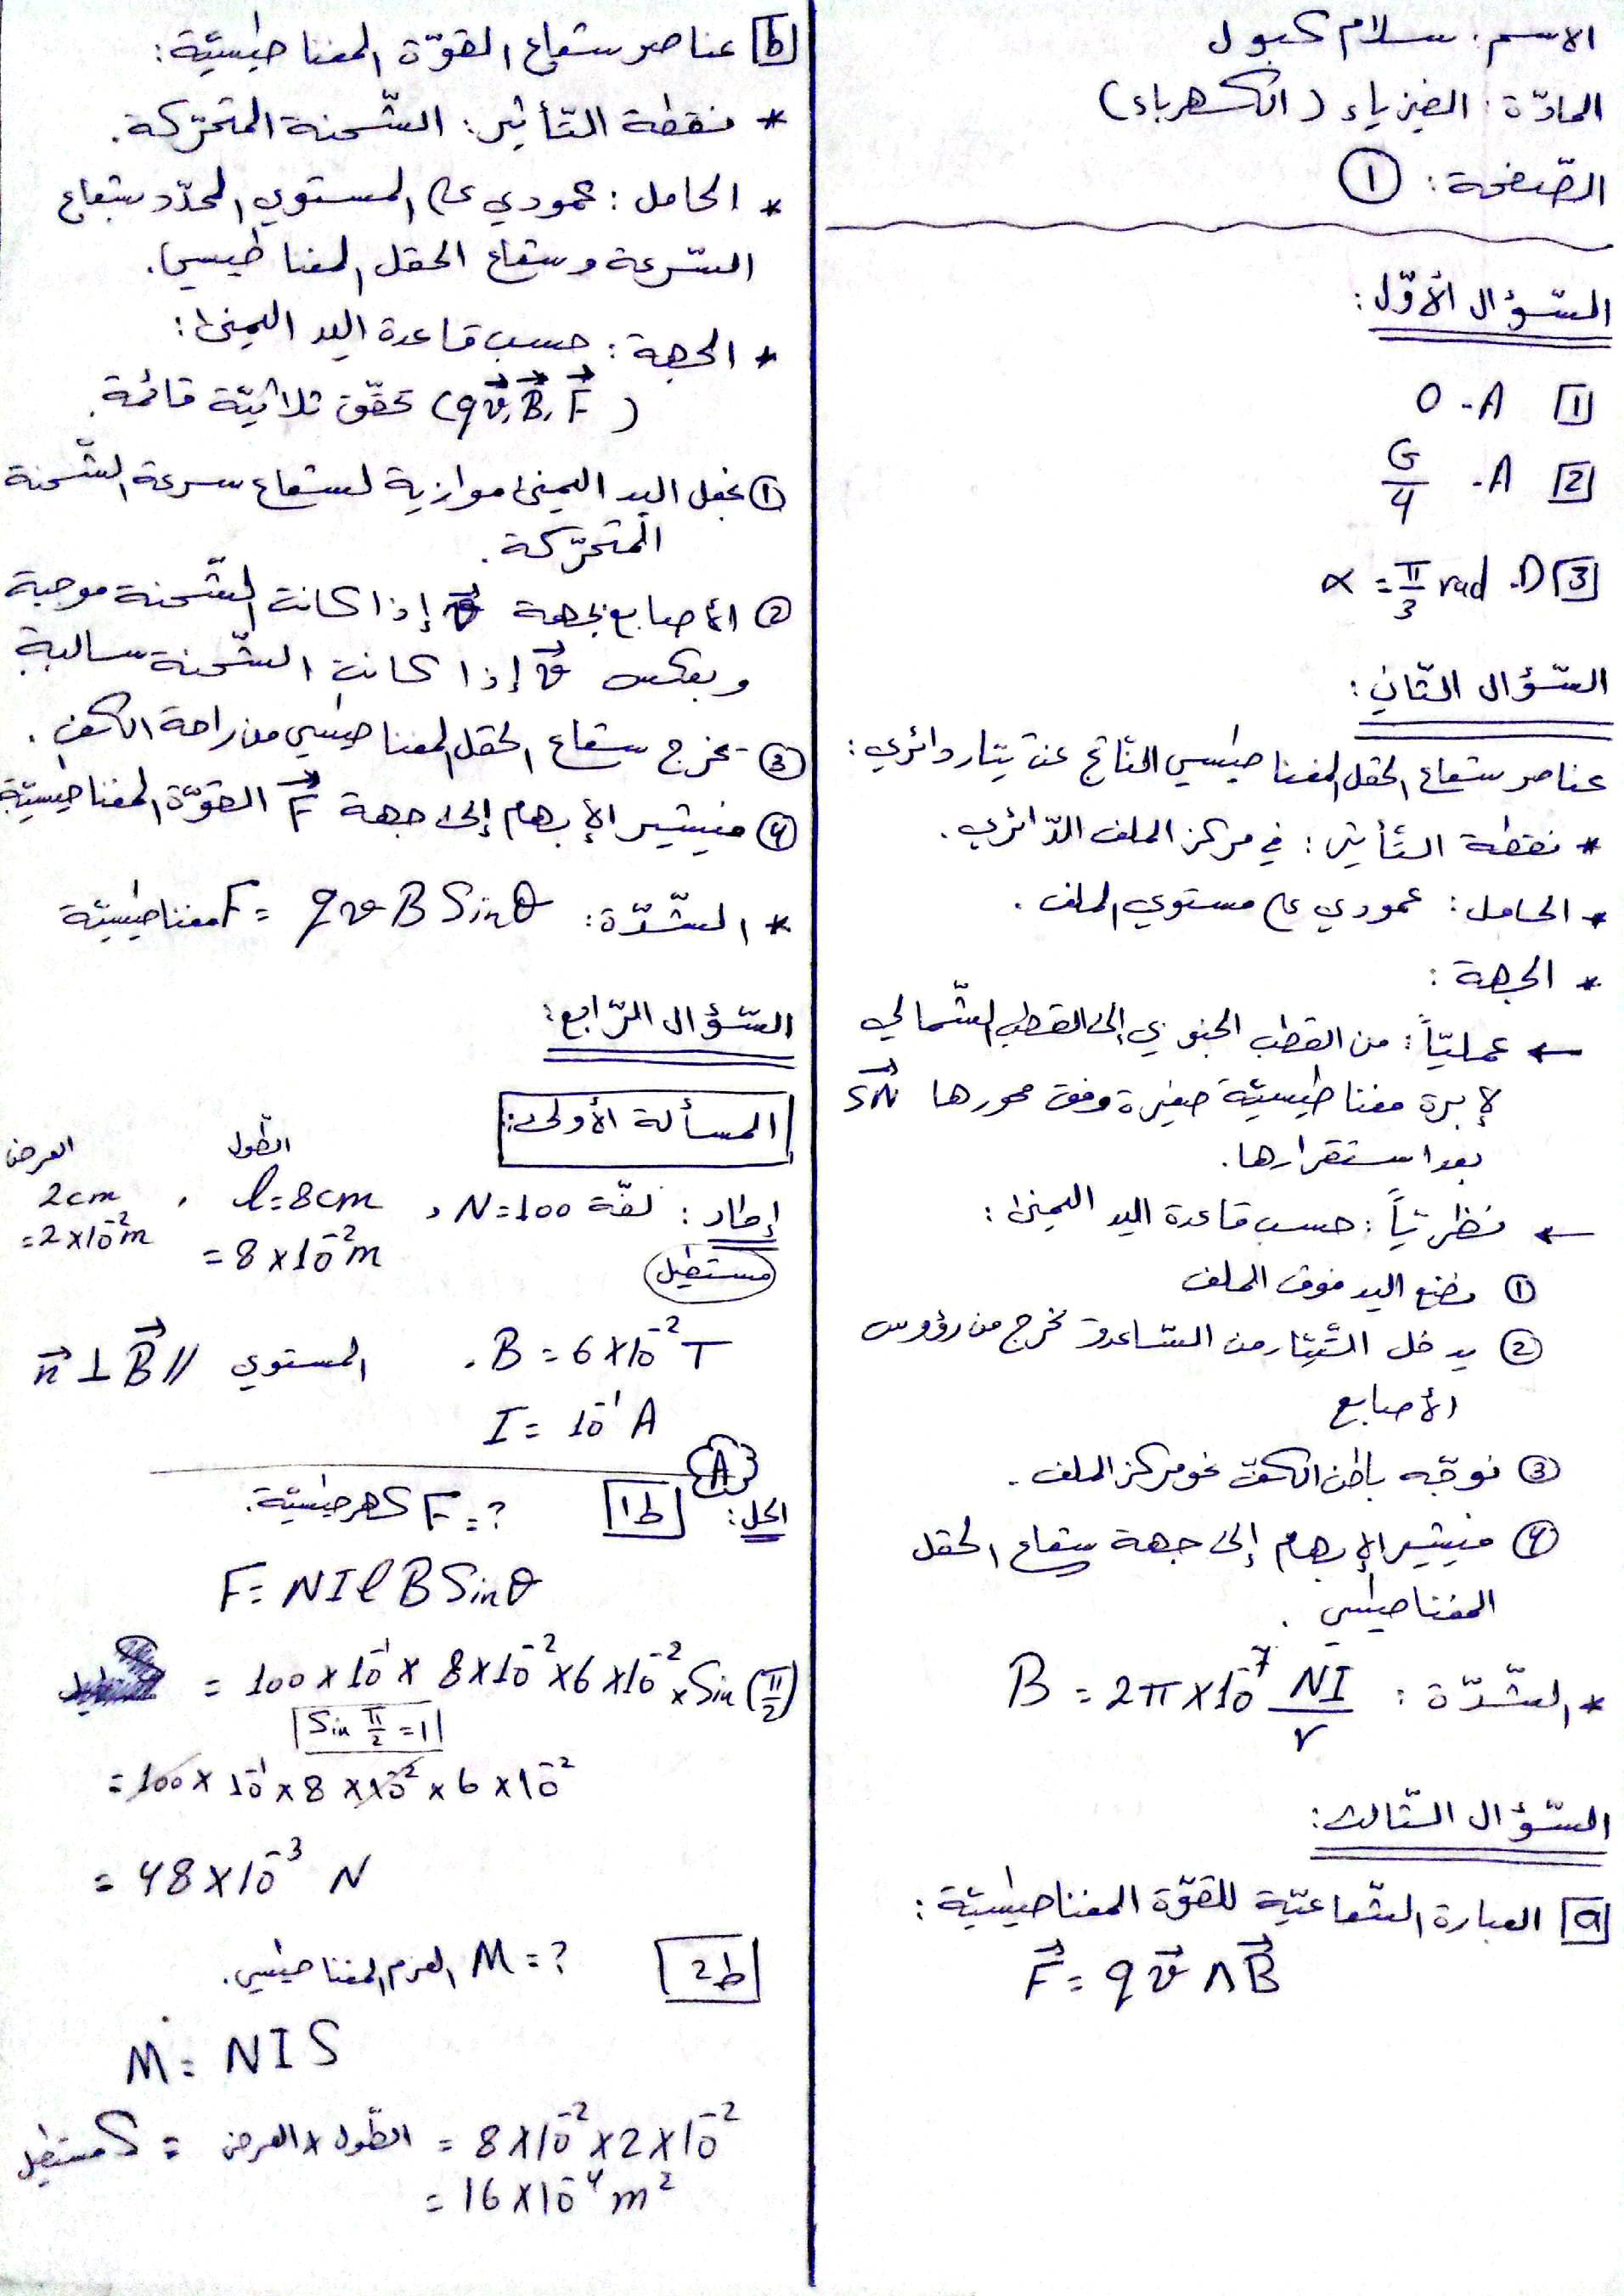 الاسم: سلام كبول
المادّة: الفيزياء (الكهرباء)
الصّفحة: ①
السّؤال الأوّل:
1 A- 0
2 A- G/4
3 D. α = π/3 rad
السّؤال الثّاني:
عناصر شعاع الحقل المغناطيسي النّاتج عن تيّار دائري:
* نقطة التّأثير: في مركز الملف الدّائري.
* الحامل: عمودي على مستوي الملف.
* الجهة:
← عمليّاً: من القطب الجنوبي إلى القطب الشّمالي
لإبرة مغناطيسيّة صغيرة وفق محورها SN⃗
بعد استقرارها.
← نظريّاً: حسب قاعدة اليد اليمنى:
① نضع اليد فوق الملف
② يدخل التّيّار من السّاعد وتخرج من رؤوس
الأصابع
③ نوجّه باطن الكفّ نحو مركز الملف.
④ فيشير الإبهام إلى جهة شعاع الحقل
المغناطيسي.
* الشّدّة: B = 2π×10⁻⁷ NI/r
السّؤال الثّالث:
a العبارة الشّعاعيّة للقوّة المغناطيسيّة:
F⃗ = q v⃗ ∧ B⃗
b عناصر شعاع القوّة المغناطيسيّة:
* نقطة التّأثير: الشّحنة المتحرّكة.
* الحامل: عمودي على المستوي المحدّد بشعاع
السّرعة وشعاع الحقل المغناطيسي.
* الجهة: حسب قاعدة اليد اليمنى:
(qv⃗, B⃗, F⃗) تحقّق ثلاثيّة قائمة.
① نجعل اليد اليمنى موازية لشعاع سرعة الشّحنة
المتحرّكة.
② الأصابع بجهة v⃗ إذا كانت الشّحنة موجبة
وبعكس v⃗ إذا كانت الشّحنة سالبة
③ يخرج شعاع الحقل المغناطيسي من راحة الكف.
④ فيشير الإبهام إلى جهة F⃗ القوّة المغناطيسيّة
* الشّدّة: F مغناطيسيّة = q v B Sinθ
السّؤال الرّابع:
المسألة الأولى:
الطّول العرض
إطار: N=100 لفّة، l=8cm، 2cm
مستطيل = 8×10⁻²m =2×10⁻²m
B = 6×10⁻² T. المستوي // B⃗ ⊥ n⃗
I = 10⁻¹ A
A
الحل: ط1 F كهرطيسيّة = ?
F = NIlB Sinθ
= 100 × 10⁻¹ × 8×10⁻² × 6×10⁻² × Sin(π/2)
Sin π/2 = 1
= 100 × 10⁻¹ × 8 × 10⁻² × 6 × 10⁻²
= 48×10⁻³ N
ط2 M = ? العزم المغناطيسي.
M = NIS
S مستطيل = الطّول × العرض = 8×10⁻² × 2×10⁻²
= 16×10⁻⁴ m²